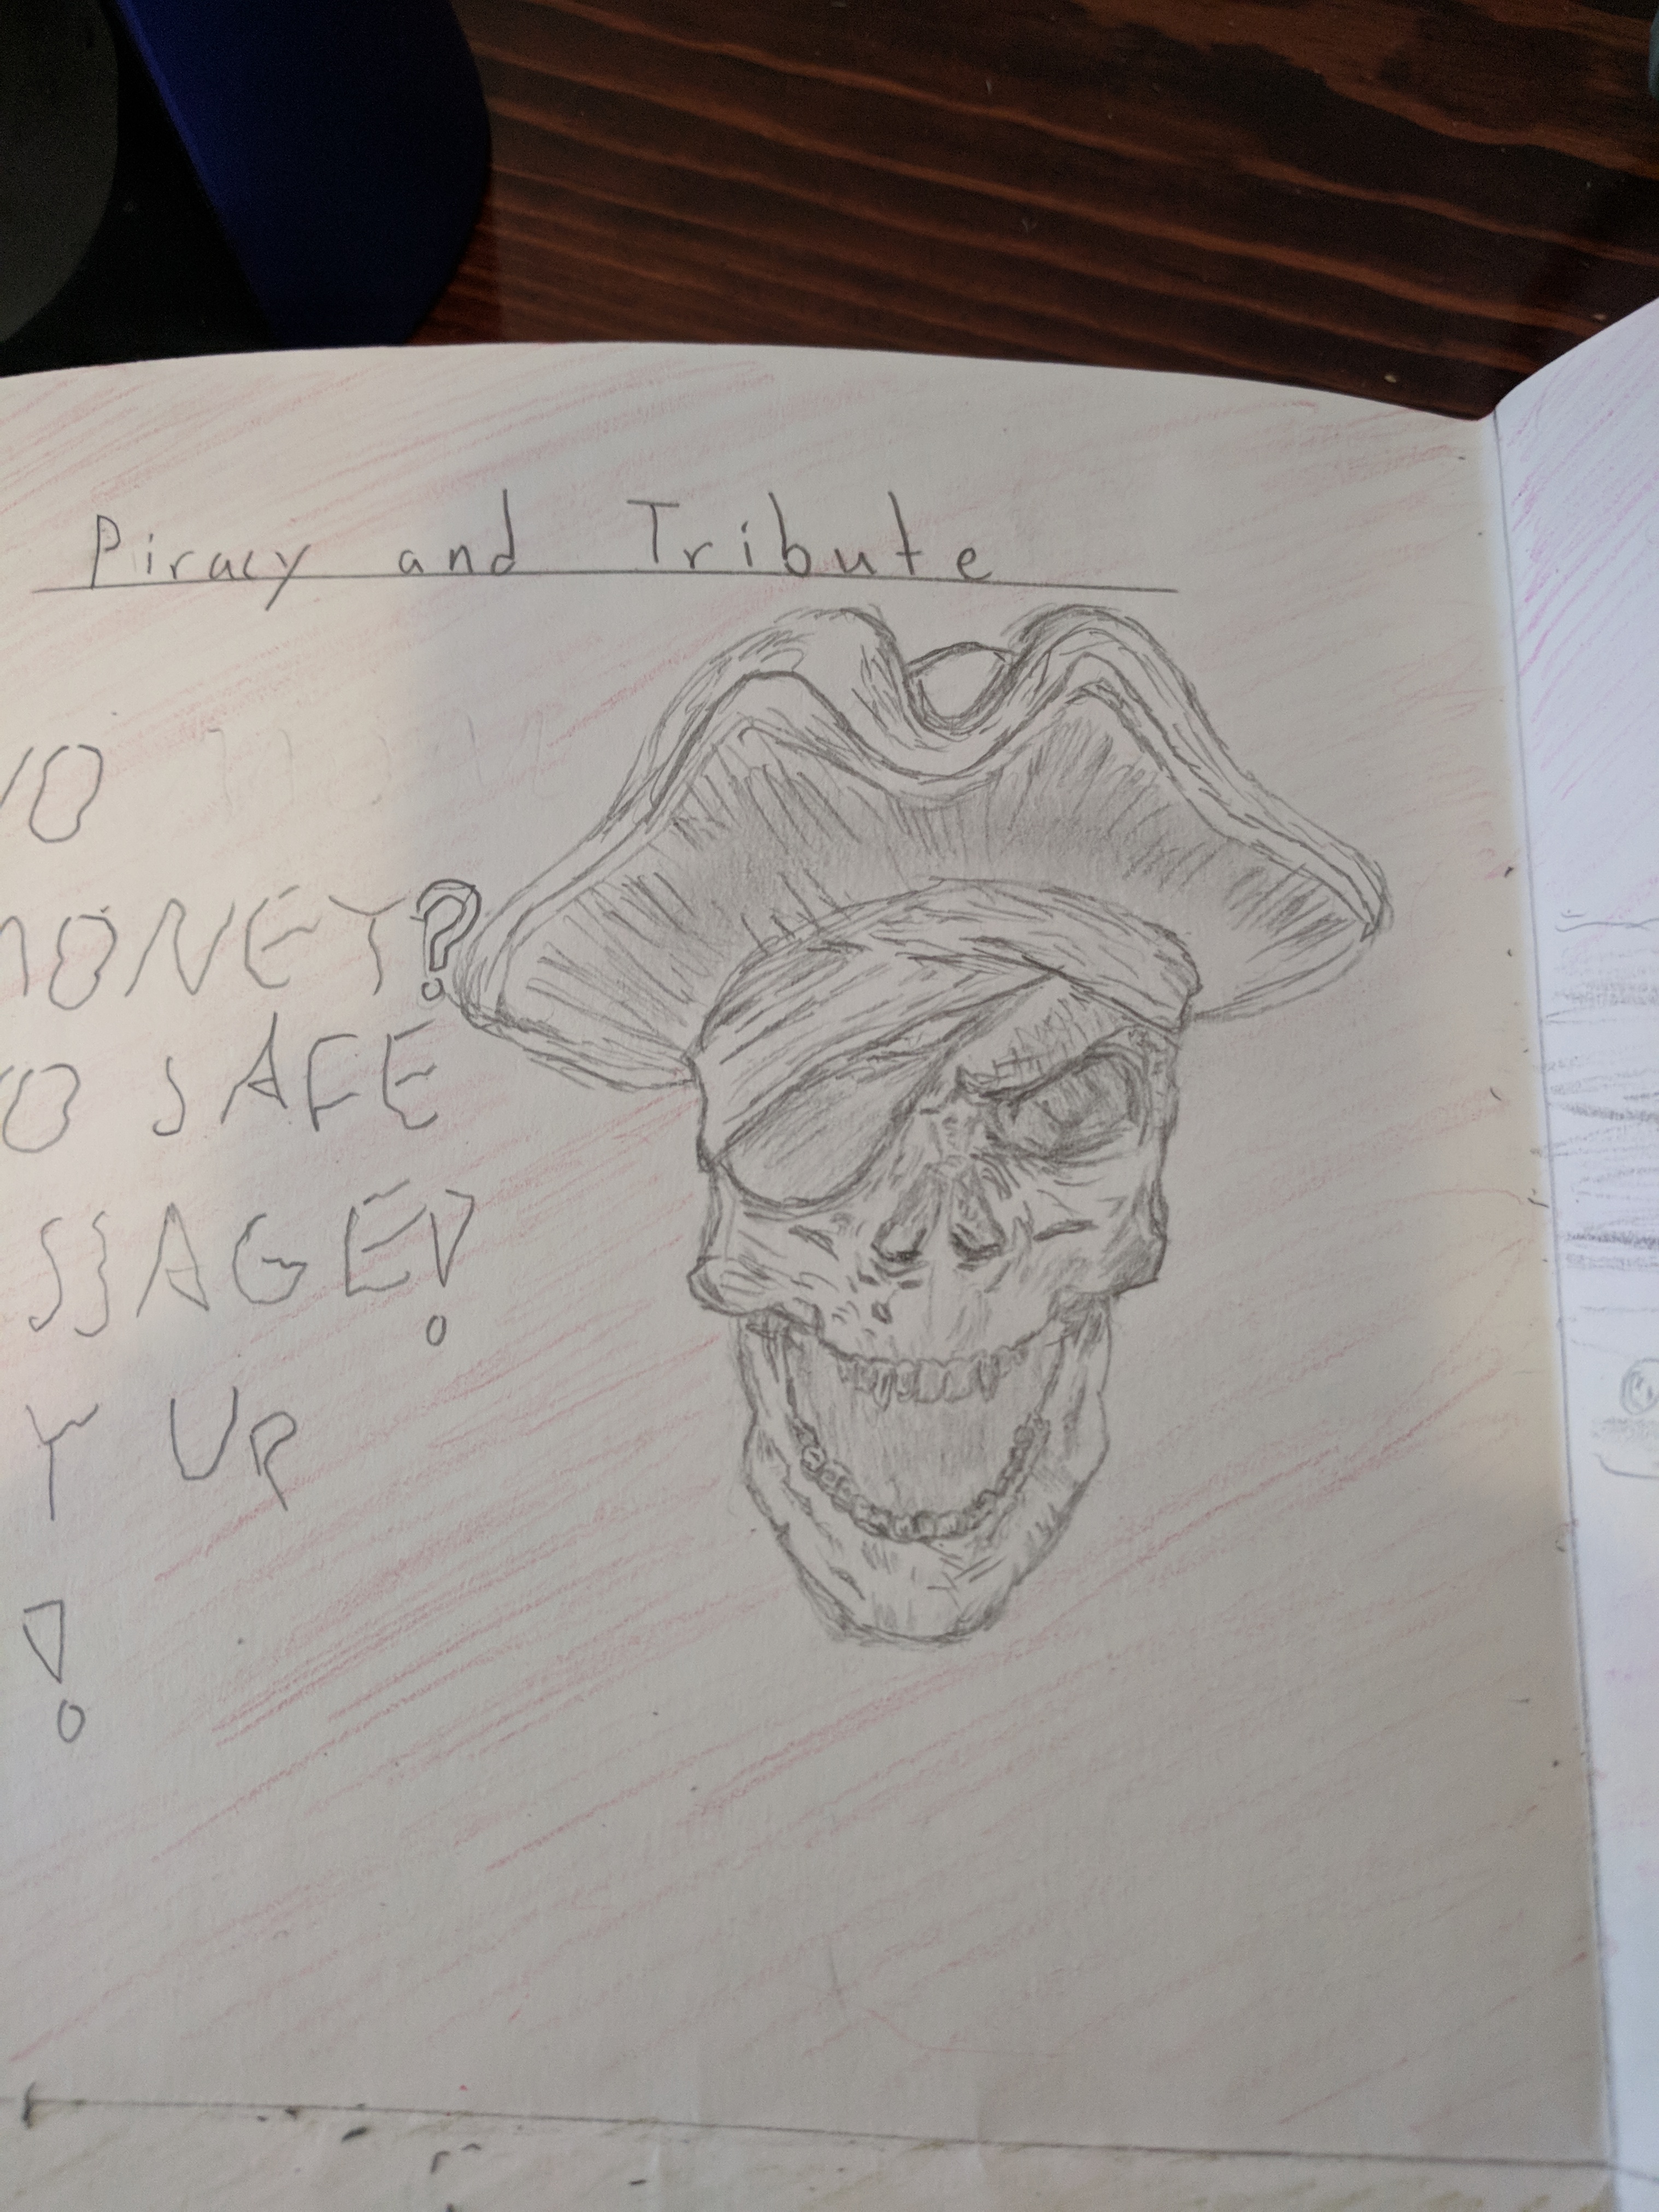 Piracy and Tribute
NO
MONEY?
NO SAFE
SSAGE!
Y UP
!